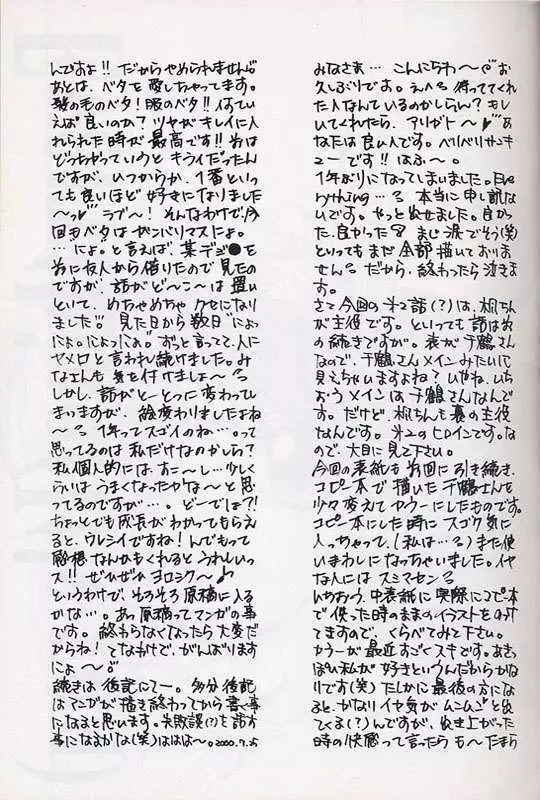 みなさま… こんにちわ〜♡お
久しぶりです。えへ。待っててくれ
た人なんているのかしらん? もし
いてくれたら、アリガト〜♡あ
なたは良い人です。ベリベリサンキ
ューです!! はふ〜。
1年ぶりになってしまいました。Eve
rything…。本当に申し訳な
いです。やっと出せました。良かっ
た、良かった。まじ涙でそう(笑)
といってもまだ全部描いておりま
せん。だから、終わったら泣きま
す。
さて今回の第2話(?)は、梓ちん
が主役です。といっても話は前
の続きですが。表が千鶴さん
なので、千鶴さんメインみたいに
見えちゃいますよね? いやね、いち
おうメインは千鶴さんなんで
す。だけど、梓ちんも裏の主役
なんです。第2のヒロインです。な
ので、大目に見て下さい。
今回の表紙も前回に引き続き、
コピー本で描いた千鶴さんを
少々変えてカラーにしたものです。
コピー本にした時にスゴク気に
入っちゃって、(私は…。)また使
いまわしになっちゃいました。イヤ
な人にはスミマセン。
いちおう、中表紙に実際にコピー本
で使った時のままのイラストをのけ
てますので、くらべてみて下さい。
カラーが最近すごくスキです。あきっ
ぽい私が好きというんだからかな
りです(笑) たしかに最後の方にな
ると、かなりイヤ気がムンムンと出
てくる(?)んですが、出き上がった
時の快感って言ったら も〜たまら
んですよ!! だからやめられません
あとは、ベタを愛しちゃってます。
髪の毛のベタ! 服のベタ!! 何てい
えば良いのか? ツヤがキレイに入
れられた時が最高です!! 前は
どっちかっていうとキライだったん
ですが、いつからか、1番といっ
ても良いほど好きになりました
〜っ♡ラブ〜! そんなわけで今
回もベタはガンバリマスにょ。
…"にょ。"と言えば、某デジ●を
前に友人から借りたので見たの
ですが、話がど〜こ〜は置い
といて、めちゃめちゃクセになり
ました!! 見た日から数日"にょっ
にょ。にょっにょ。"ずっと言ってて、人に
ヤメロと言われ続けました。み
なさんも気を付けましょ〜。
しかし、話がとーとつに変わってし
まいますが、絵変わりましたよね
〜。1年ってスゴイのね…。って
思ってるのは私だけなのかしら?
私個人的には、すこ〜し…少しく
らいはうまくなったかな〜と思
ってるのですが…。どーでしょ?!
ちょっとでも成長がわかってもらえ
ると、ウレシイですね! んでもって
感想なんかもくれるとうれしいっ
ス!! ぜひぜひヨロシク〜♪
というわけで、そろそろ原稿に入る
かな…。あっ原稿ってマンガの事
です。終わらなくなったら大変だ
からね! てなわけで、がんばります
にょ〜。
続きは後記にてー。多分後記
はマンガが描き終わってから書く事
になると思います。失敗談(?)も話す
事になるかな(笑)ははは〜。2000.7.25